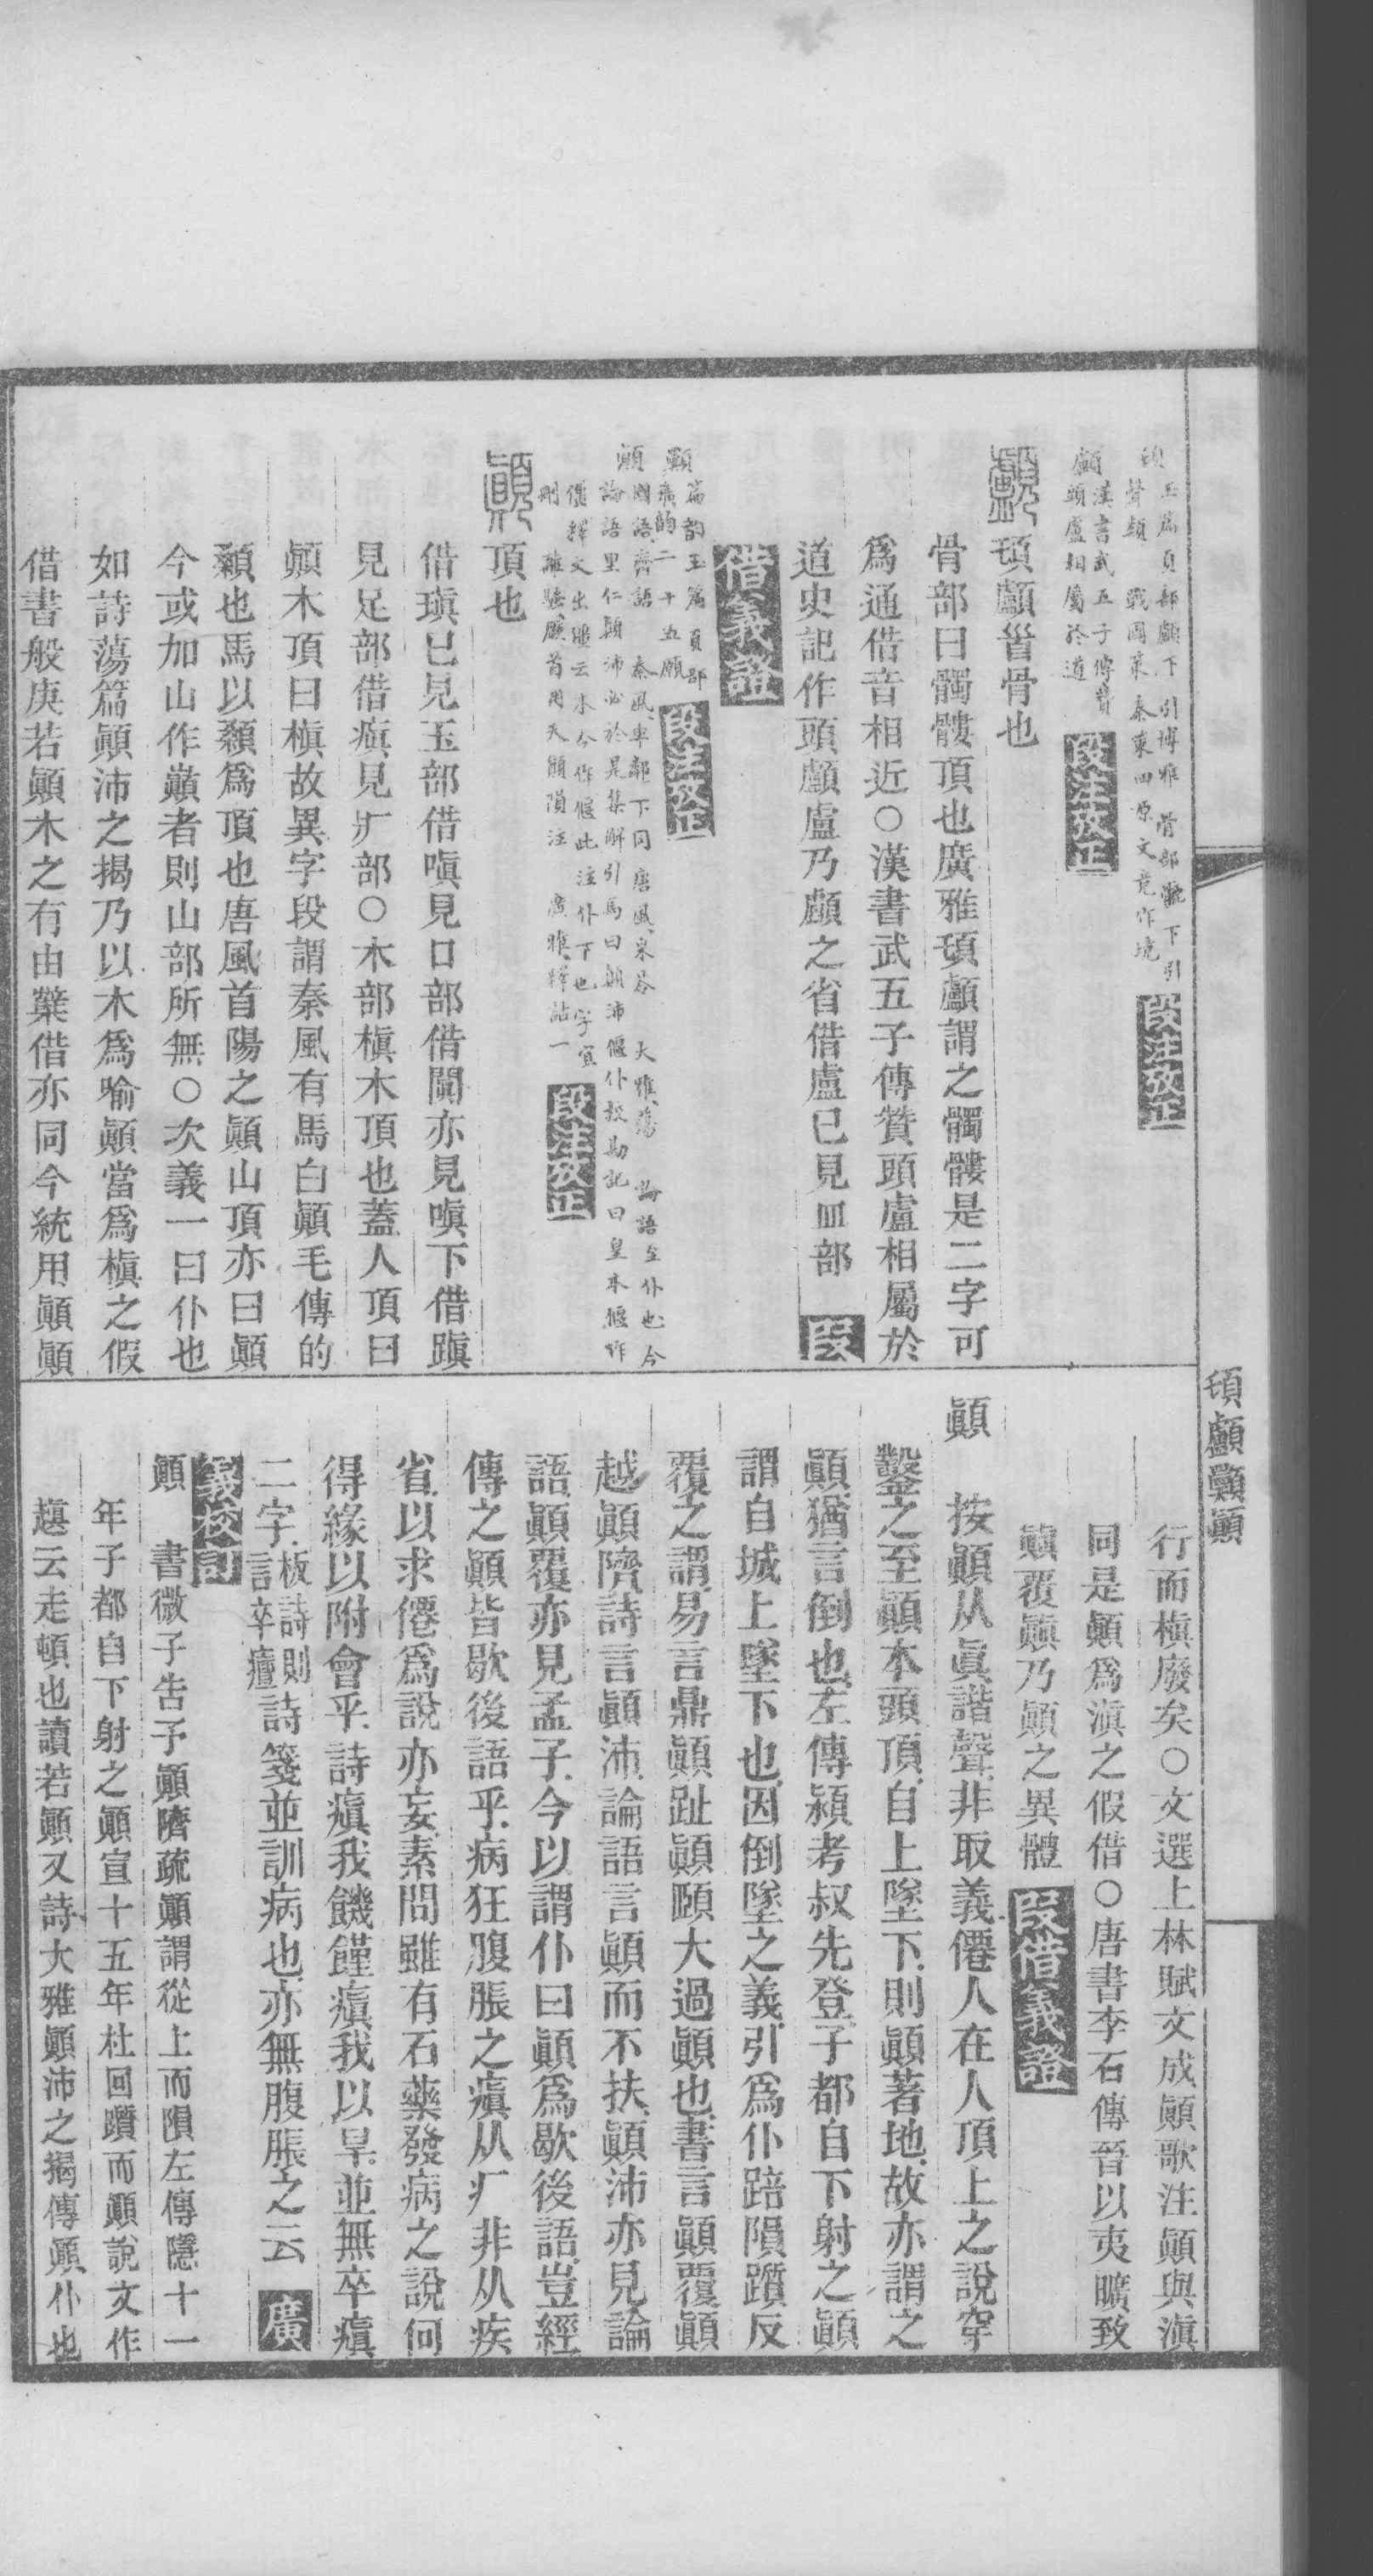 頊 玉篇頁部顱下引博雅 骨部髗下引
聲類 戰國策秦策四原文竟作境 段注攷正
顱 漢書武五子傳贊
頭盧相屬於道 段注攷正
顱 頊顱首骨也
骨部曰髑髏頂也廣雅頊顱謂之髑髏是二字可
爲通借音相近○漢書武五子傳贊頭盧相屬於
道史記作頭顱盧乃顱之省借盧已見皿部 段
借義證
顥 篇韵玉篇頁部
廣韵二十五願 段注攷正
顚 國語齊語 秦風車鄰下同唐風采苓 大雅蕩 論語至仆也今
論語里仁顚沛必於是集解引馬曰顚沛偃仆校勘記曰皇本偃作
僵釋文出僵云本今作偃此注仆下也字宜
刪 離騷厥首用夫顚隕注 廣雅釋詁一 段注攷正
顚 頂也
借瑱已見玉部借嗔見口部借闐亦見嗔下借蹎
見足部借瘨見疒部○木部槇木頂也蓋人頂曰
顚木頂曰槇故異字段謂秦風有馬白顚毛傳的
顙也馬以顙爲頂也唐風首陽之顚山頂亦曰顚
今或加山作巓者則山部所無○次義一曰仆也
如詩蕩篇顚沛之揭乃以木爲喻顚當爲槇之假
借書般庚若顚木之有由櫱借亦同今統用顚顚
頊顱顥顚
行而槇廢矣○文選上林賦文成顚歌注顚與滇
同是顚爲滇之假借○唐書李石傳晉以夷曠致
顚覆顚乃顚之異體 段借義證
顚 按顚从眞諧聲非取義僊人在人頂上之說穿
鑿之至顚本頭頂自上墜下則顚著地故亦謂之
顚猶言倒也左傳潁考叔先登子都自下射之顚
謂自城上墜下也因倒墜之義引爲仆踣隕躓反
覆之謂易言鼎顚趾顚頤大過顚也書言顚覆顚
越顚隮詩言顚沛論語言顚而不扶顚沛亦見論
語顚覆亦見孟子今以謂仆曰顚爲歇後語豈經
傳之顚皆歇後語乎病狂腹脹之瘨从疒非从疾
省以求僊爲說亦妄素問雖有石藥發病之說何
得緣以附會乎詩瘨我饑饉瘨我以旱並無卒瘨
二字板詩則言卒癉詩箋並訓病也亦無腹脹之云 廣
義校因
顚 書微子吿予顚隮疏顚謂從上而隕左傳隱十一
年子都自下射之顚宣十五年杜回躓而顚說文作
趚云走頓也讀若顚又詩大雅顚沛之揭傳顚仆也